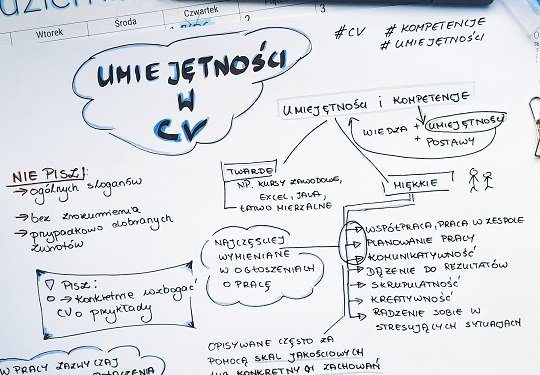 Wtorek
Środa
Czwartek
3
# CV # KOMPETENCJE
# UMIEJĘTNOŚCI
UMIEJĘTNOŚCI
W
CV
UMIEJĘTNOŚCI i KOMPETENCJE
WIEDZA + UMIEJĘTNOŚCI
+ POSTAWY
NIE PISZ!:
→ ogólnych sloganów
→ bez zrozumienia
→ przypadkowo dobranych
zwrotów
TWARDE
NP. KURSY ZAWODOWE,
EXCEL, JAVA,
ŁATWO MIERZALNE
MIĘKKIE
NAJCZĘŚCIEJ
WYMIENIANE
W OGŁOSZENIACH
O PRACĘ
WSPÓŁPRACA, PRACA W ZESPOLE
PLANOWANIE PRACY
KOMUNIKATYWNOŚĆ
DĄŻENIE DO REZULTATÓW
SKRUPULATNOŚĆ
KREATYWNOŚĆ
RADZENIE SOBIE W
STRESUJĄCYCH SYTUACJACH
PISZ:
→ konkretnie wzbogać
CV o przykłady
OPISYWANE CZĘSTO ZA
POMOCĄ SKAL JAKOŚCIOWYCH
KONKRETNYCH ZACHOWAŃ
W PRACY ZAZWYCZAJ